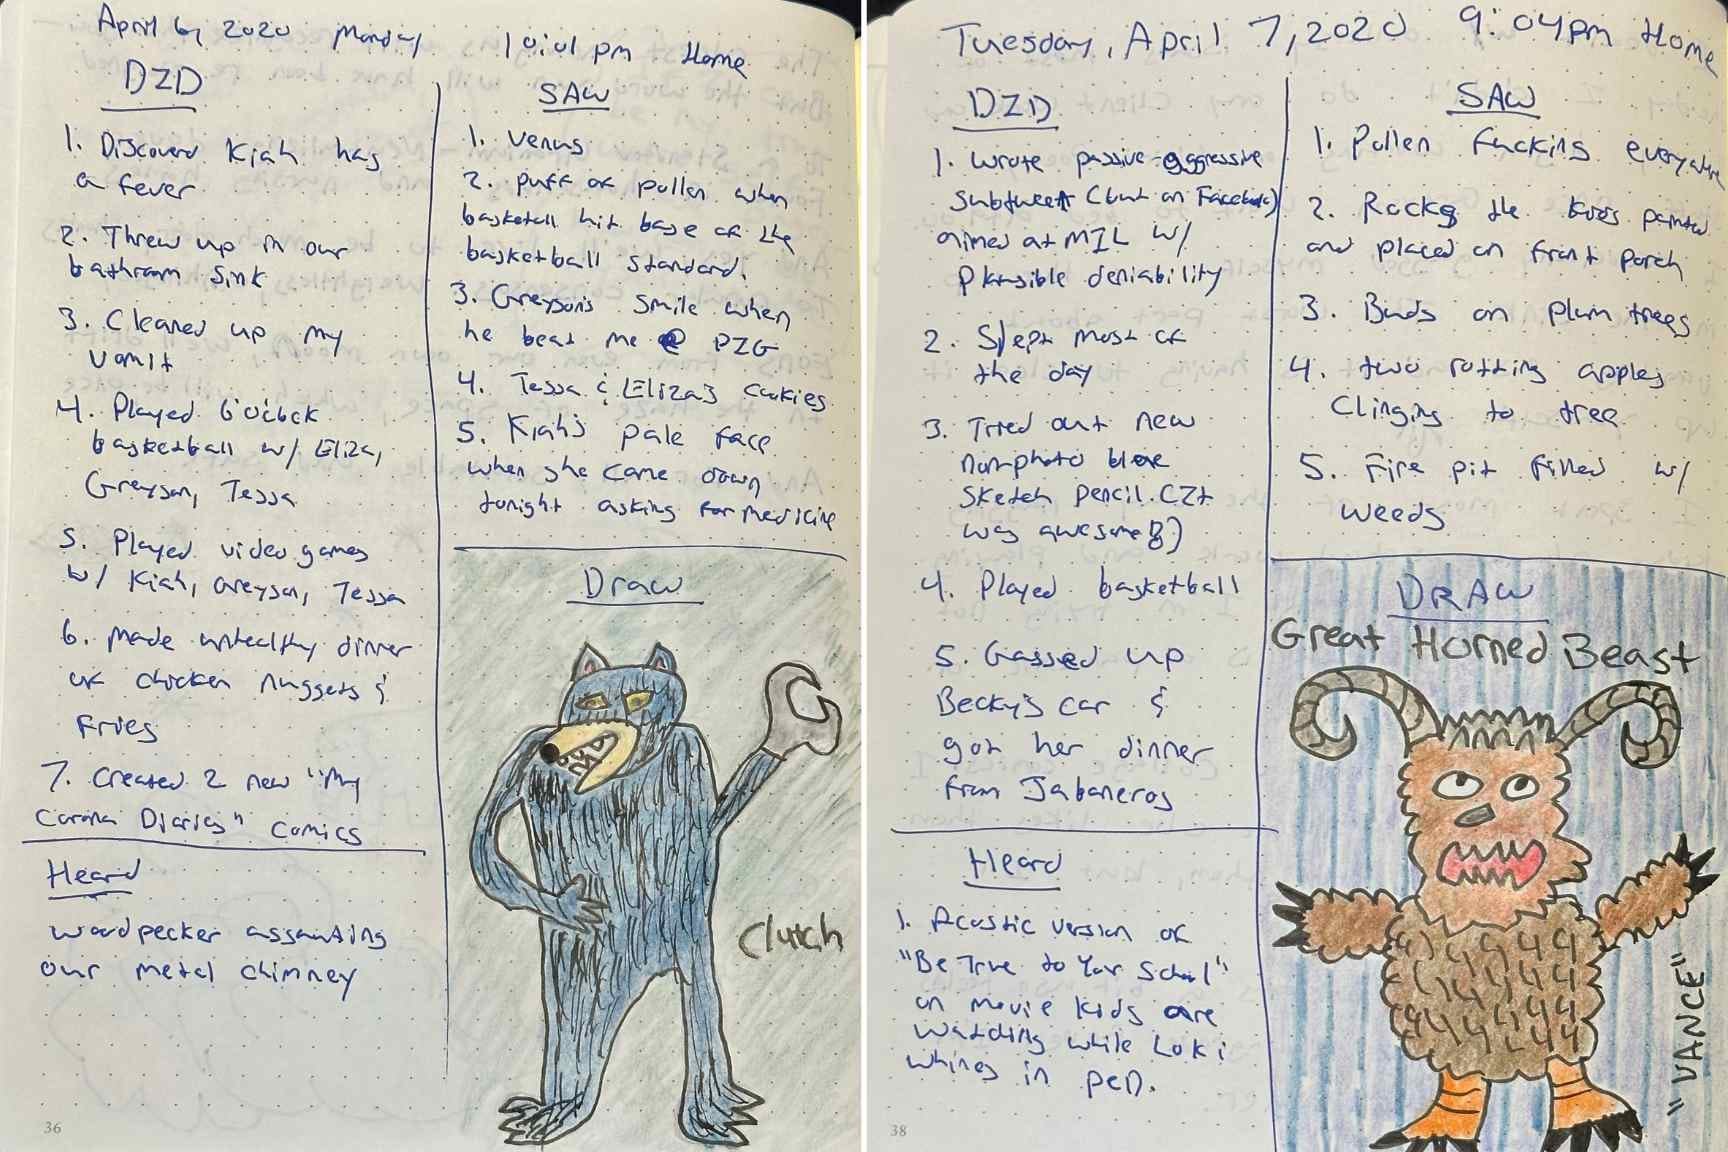 April 6, 2020 Monday 10:01 pm Home
DZD
1. Discoverd Kiah has
a fever
2. Threw up in our
bathroom sink
3. Cleaned up my
vomit
4. Played 6 o'clock
basketball w/ Eliza,
Greyson, Tessa
5. Played video games
w/ Kiah, Greyson, Tessa
6. Made unhealthy dinner
of chicken nuggets &
fries
7. Created 2 new "My
Corona Diaries" comics
Heard
woodpecker assaulting
our metal chimney
SAW
1. Venus
2. puff of pollen when
basketball hit base of the
basketball standard.
3. Greyson's smile when
he beat me @ PIG
4. Tessa & Eliza's cookies
5. Kiah's pale face
when she came down
tonight asking for medicine
Draw
Clutch
36
Tuesday, April 7, 2020 9:04pm Home
DZD
1. Wrote passive-aggressive
subtweet (but on Facebook)
aimed at MIL w/
plausible deniability
2. Slept most of
the day
3. Tried out new
non-photo blue
sketch pencil. (It
was awesome!)
4. Played basketball
5. Gassed up
Becky's car &
got her dinner
from Jabaneros
Heard
1. Acostic version of
"Be True to Your School"
on movie kids are
watching while Loki
whines in pen.
SAW
1. Pollen fucking everywhere
2. Rocks the kids painted
and placed on front porch
3. Buds on plum trees
4. two rotting apples
clinging to tree
5. Fire pit filled w/
weeds
DRAW
Great Horned Beast
"VANCE"
38